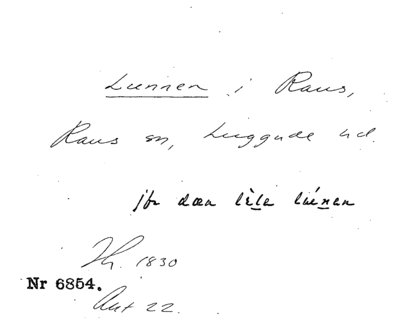 Lunnen i Raus,
Raus sn, Luggude hd.
jfr dæn lèla lúnen
Th. 1830
Nr 6854.
Ant 22.